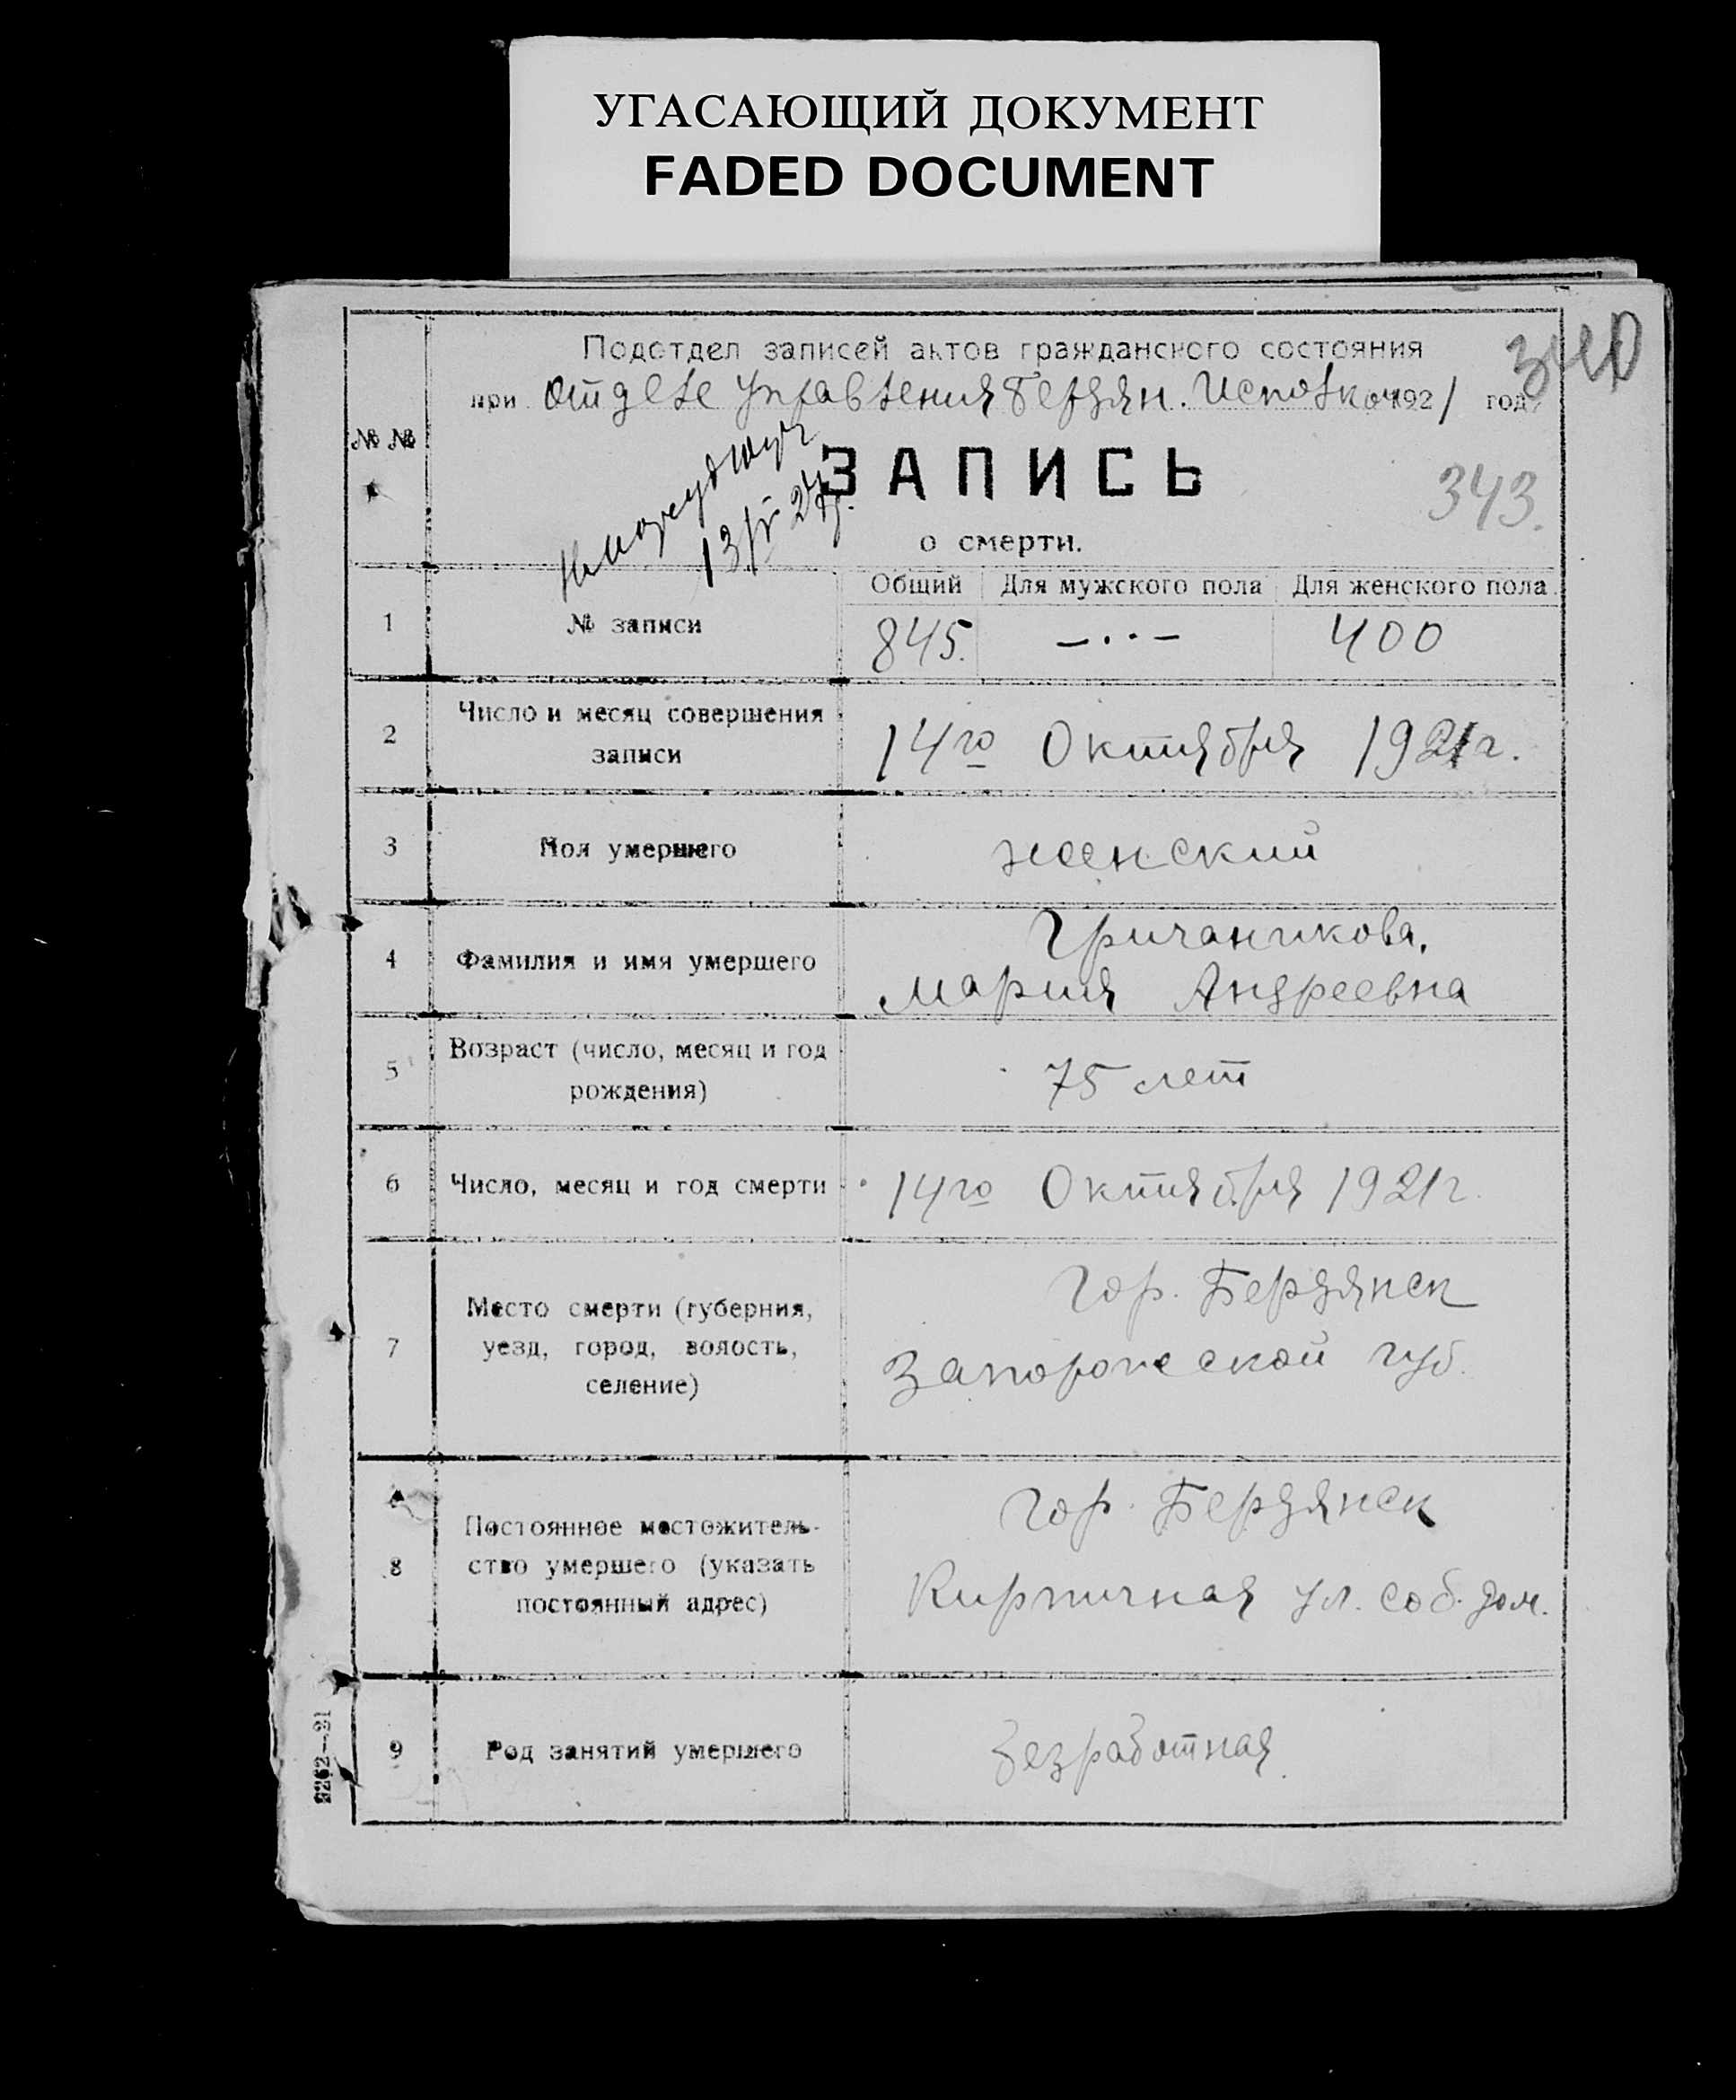 УГАСАЮЩИЙ ДОКУМЕНТ
FADED DOCUMENT
340
Подотдел записей актов гражданского состояния
при Отделе Управления Бердян. Исполком 1921 года
№ №
ЗАПИСЬ
343.
13/V 27г.
о смерти.
Общий Для мужского пола Для женского пола
1 № записи 845. —··— 400
2 Число и месяц совершения
записи
14го Октября 1921г.
3 Пол умершего женский
4 Фамилия и имя умершего
Гричаникова,
Мария Андреевна
5 Возраст (число, месяц и год
рождения)
75 лет
6 Число, месяц и год смерти 14го Октября 1921г.
7 Место смерти (губерния,
уезд, город, волость,
селение)
Гор. Бердянск
Запорожской губ.
8 Постоянное местожитель-
ство умершего (указать
постоянный адрес)
Гор. Бердянск
Кирпичная ул. соб. дом.
9 Род занятий умершего безработная
8262—21